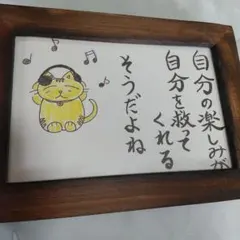 自分の楽しみが
自分を救って
くれる
そうだよね